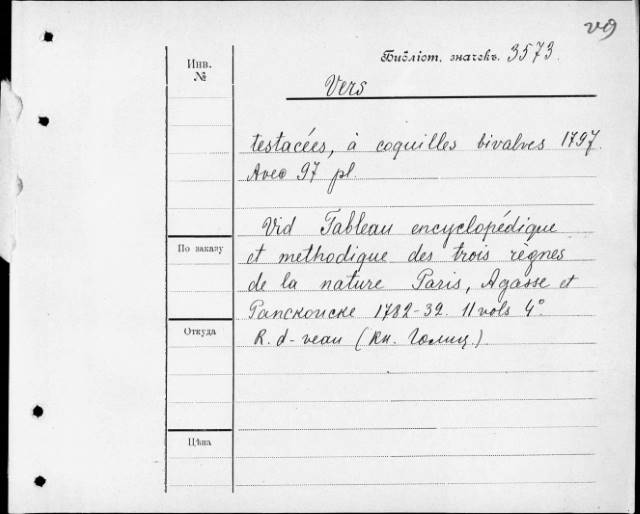 Инв.
№
Библіот. значекъ. 3573.
Vers
testacées, à coquilles bivalves 1797.
Avec 97 pl.
Vid Tableau encyclopédique
По заказу
et methodique des trois règnes
de la nature Paris, Agasse et
1782-32. 11 vols 4°.
Откуда
R. d-veau (Кн. Голиц.)
Цѣна